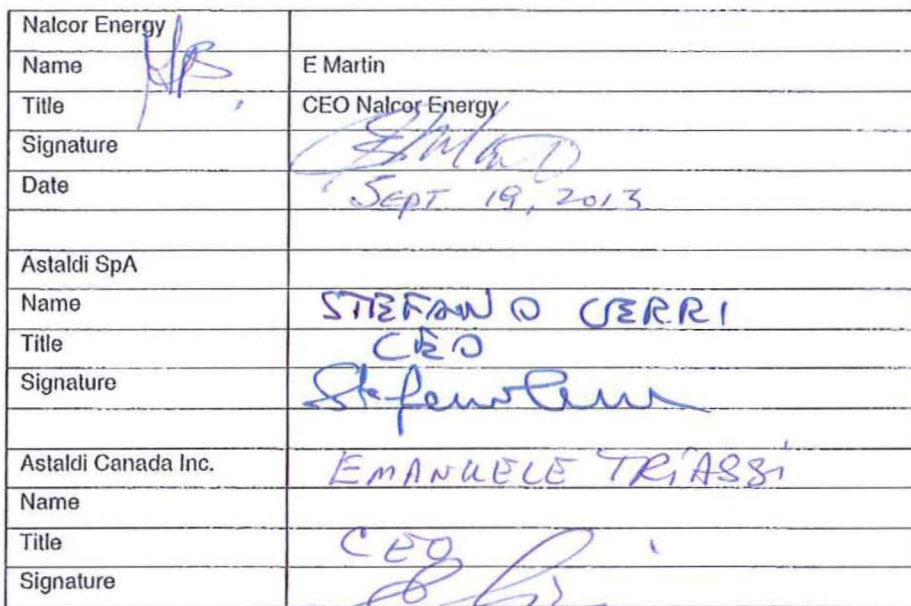 Nalcor Energy
Name E Martin
Title CEO Nalcor Energy
Signature
Date SEPT 19, 2013
Astaldi SpA
Name STEFANO CERRI
Title CEO
Signature Stefano Cerri
Astaldi Canada Inc. EMANUELE TRIASSI
Name
Title CEO
Signature